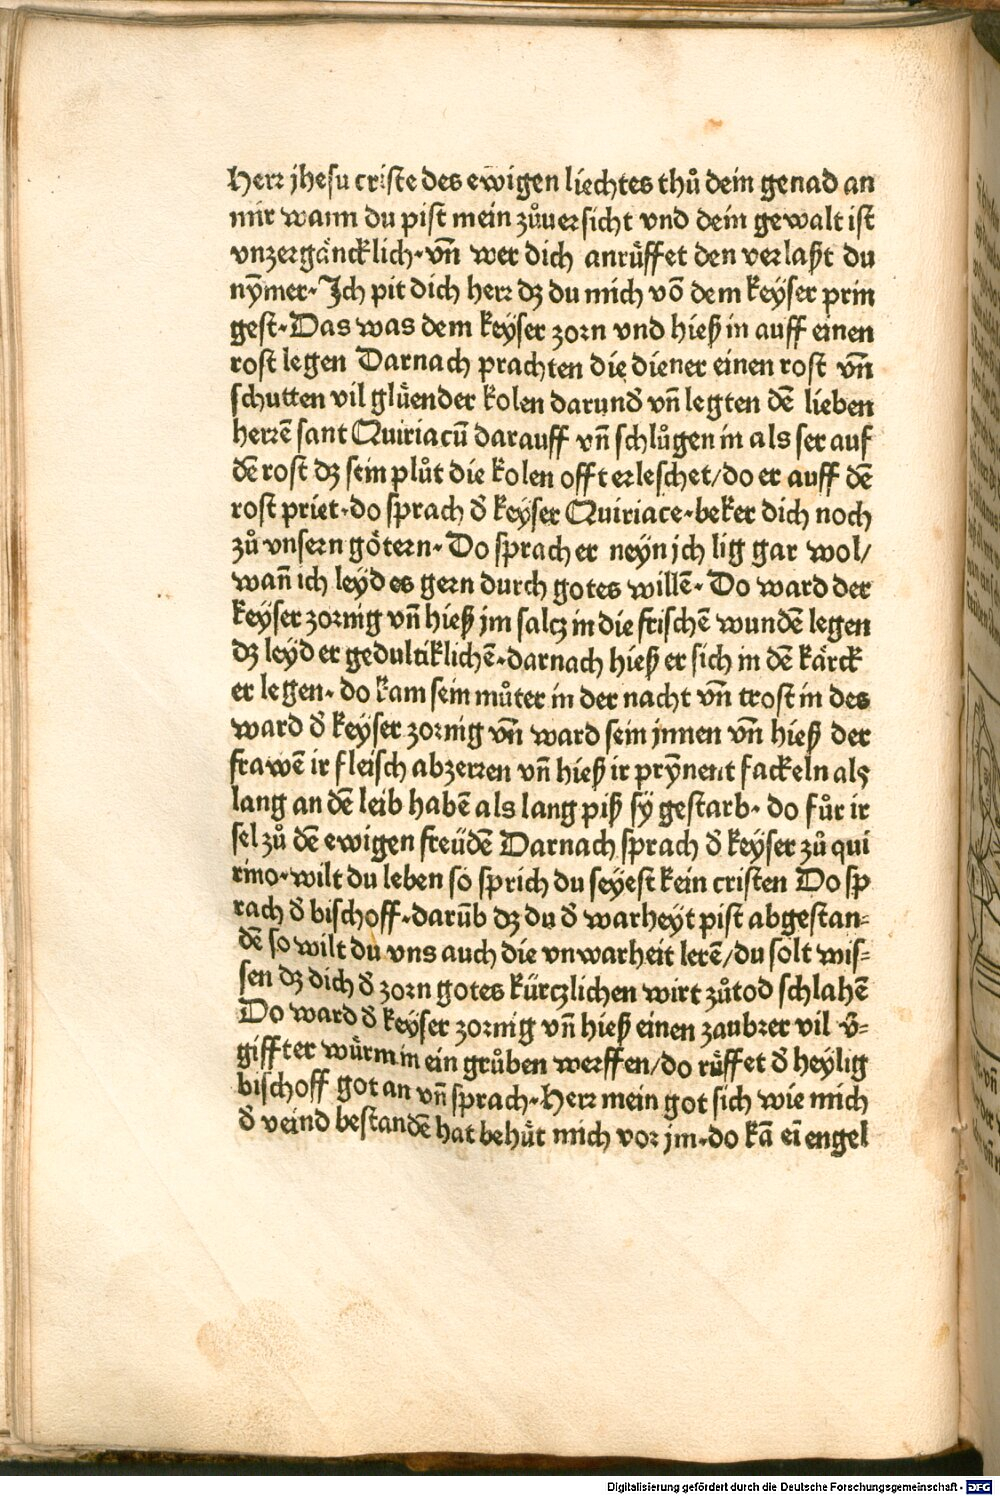 Herr jhesu criste des ewigen liechtes thuͦ dein genad an
mir wann du pist mein zuͦuersicht vnd dein gewalt ist
vnzergäncklich·vn̄ wer dich anruͤffet den verlaßt du
nym̄er·Ich pit dich herr dz du mich vō dem keyser prin
gest·Das was dem keyser zorn vnd hieß in auff einen
rost legen Darnach prachten die diener einen rost vn̄
schutten vil gluͤender kolen darund̄ vn̄ legten dē lieben
herrē sant Quiriacū darauff vn̄ schluͦgen in als ser auf
dē rost dz sein pluͦt die kolen offt erleschet/do er auff dē
rost priet·do sprach d̄ keyser Quiriace·beker dich noch
zuͦ vnsern göttern·Do sprach er neyn ich lig gar wol/
wan̄ ich leyd es gern durch gotes willē·Do ward der
keyser zornig vn̄ hieß jm saltz in die frischē wundē legen
dz leyd er gedultiklichē·darnach hieß er sich in dē kärck
er legen·do kam sein muͦter in der nacht vn̄ trost in des
ward d̄ keyser zornig vn̄ ward sein jnnen vn̄ hieß der
frawē ir fleisch abzerren vn̄ hieß ir pryn̄ent fackeln als
lang an dē leib habē als lang piß sy gestarb·do fuͦr ir
sel zuͦ dē ewigen freüdē Darnach sprach d̄ keyser zuͦ qui
rino·wilt du leben so sprich du seyest kein cristen Do sp
rach d̄ bischoff·darūb dz du d̄ warheyt pist abgestan-
dē so wilt du vns auch die vnwarheit lerē/du solt wis-
sen dz dich d̄ zorn gotes kürtzlichen wirt zuͦtod schlahē
Do ward d̄ keyser zornig vn̄ hieß einen zaubrer vil v̄-
giffter wuͤrm in ein gruͦben werffen/do ruͤffet d̄ heylig
bischoff got an vn̄ sprach·Herr mein got sich wie mich
d̄ veind bestandē hat behuͤt mich vor jm·do kā ei engel
Digitalisierung gefördert durch die Deutsche Forschungsgemeinschaft - DFG